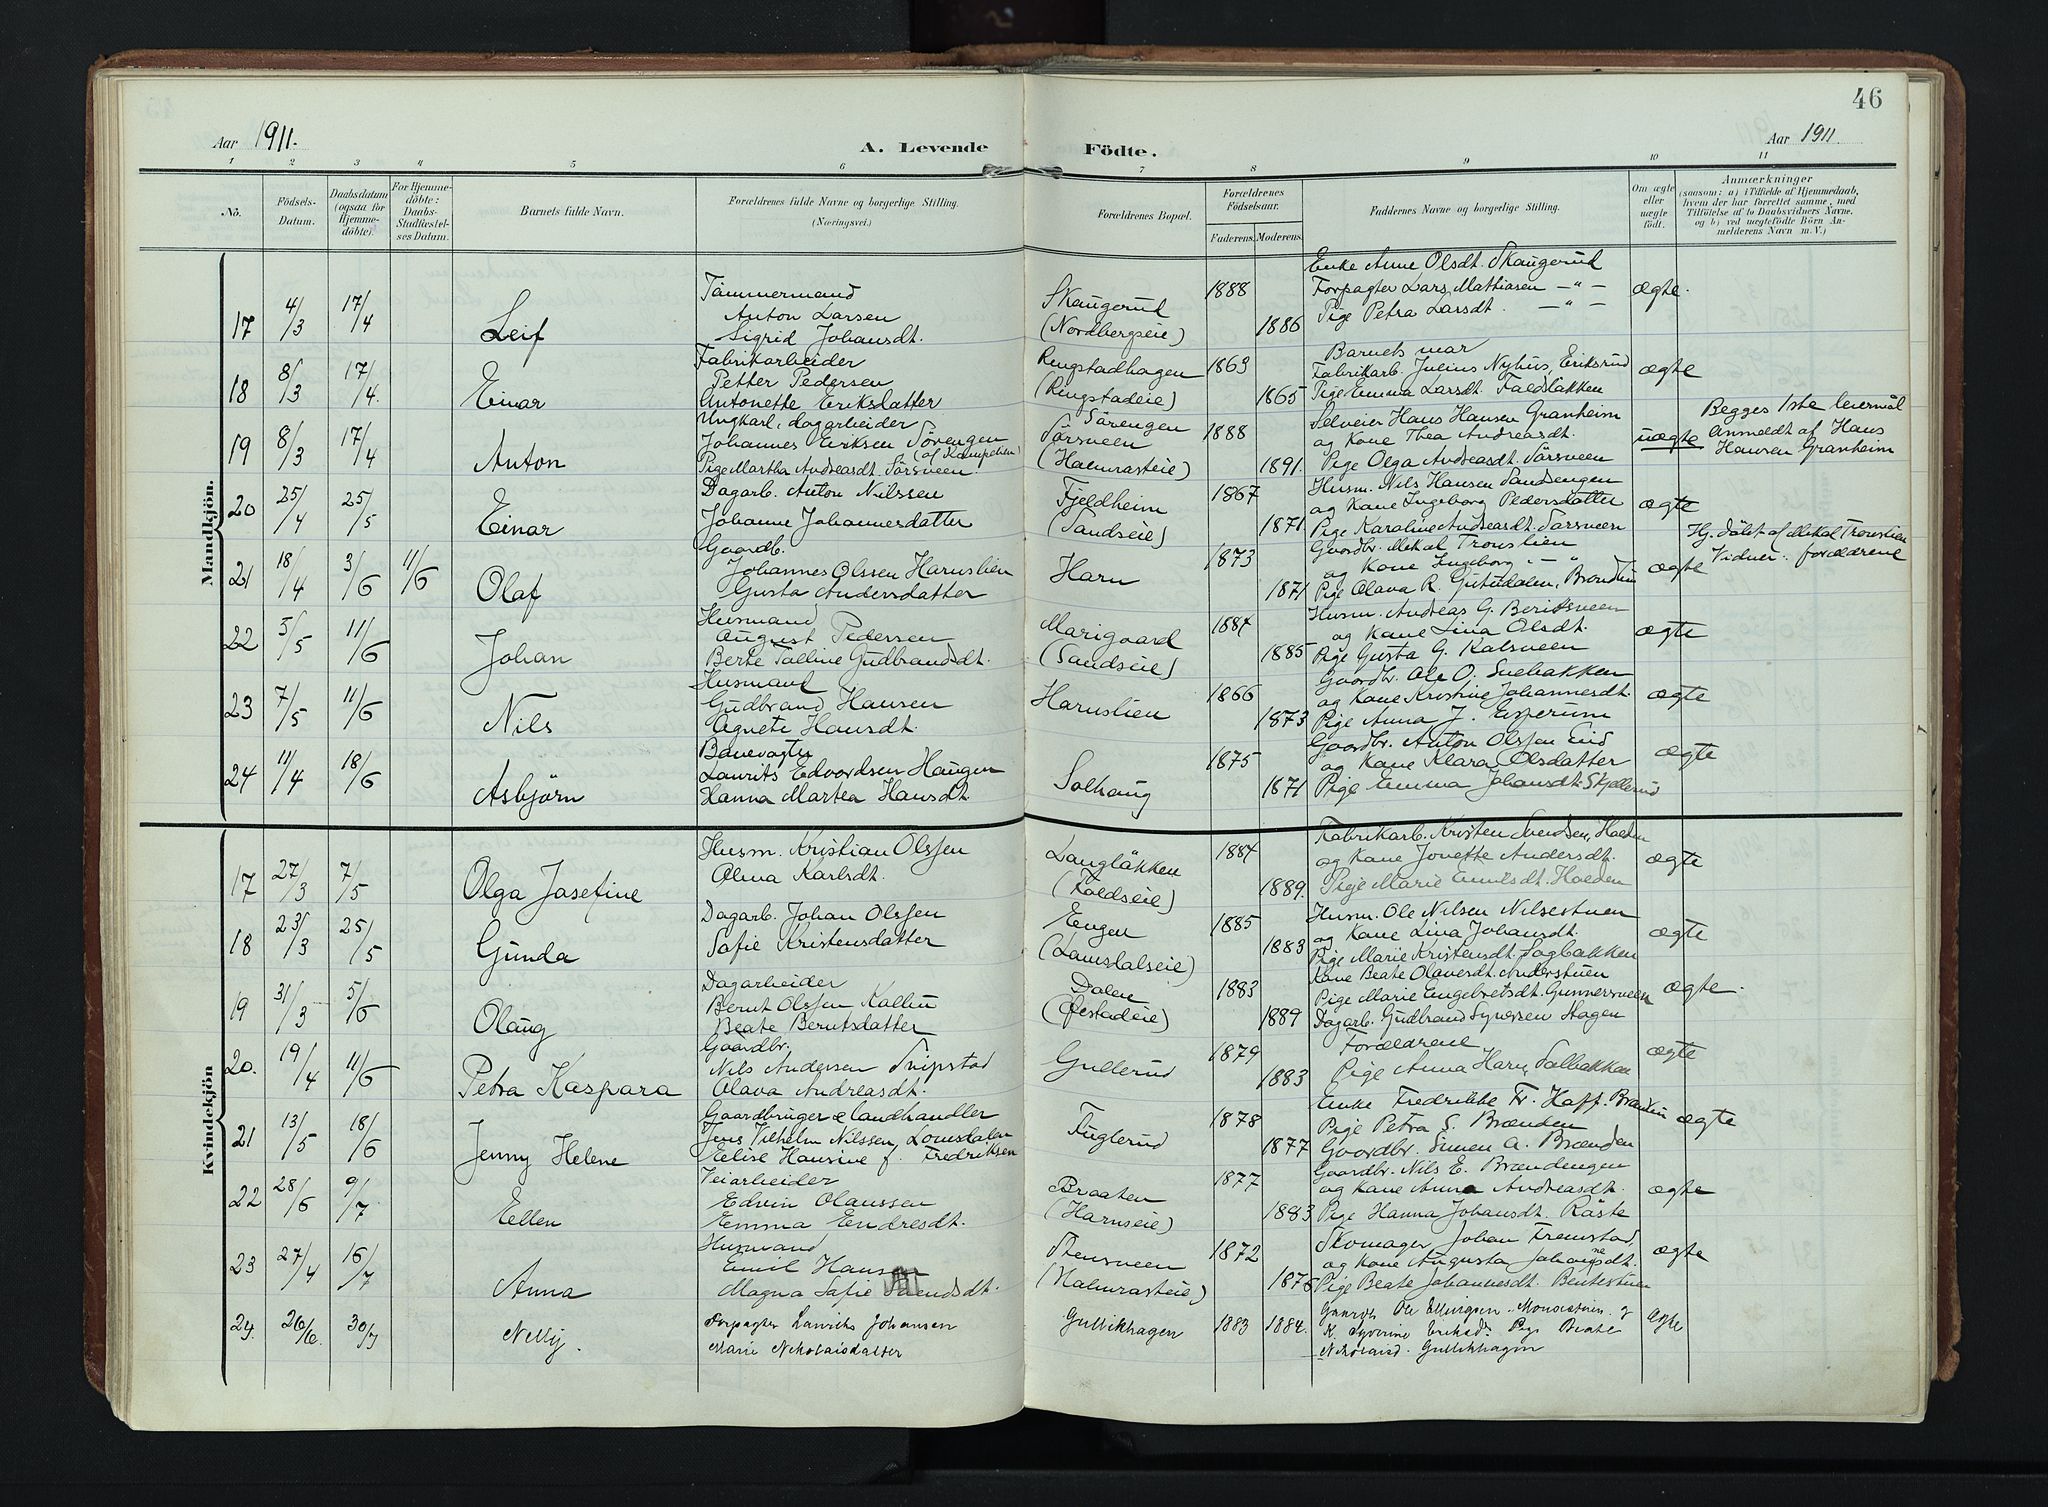 46
Aar 1911.
A. Levende
Födte.
Aar 1911.
1 2 3 4 5 6 7 8 9 10 11
No.
Födsels-
Datum.
Daabsdatum
(ogsaa for
Hjemme-
döbte).
For Hjemme-
döbte:
Daabs-
Stadfæstel-
ses Datum.
Barnets fulde Navn.
Forældrenes fulde Navne og borgerlige Stilling.
(Næringsvei.)
Forældrenes Bopæl.
Forældrenes
Födselsaar.
Faderens. Moderens.
Faddernes Navne og borgerlige Stilling.
Om ægte
eller
uægte
födt.
Anmærkninger
(saasom: a) i Tilfælde af Hjemmedaab,
hvem der har forrettet samme, med
Tilföielse af to Daabsvidners Navne,
og b) ved uegtefödte Börn An-
melderens Navn m. V.)
Mandkjön.
17 4/3 17/4 Leif
Tømmermand
Anton Larsen
Sigrid Johansdt.
Skaugerud
(Nordbergseie)
1888
1886
Enke Anne Olsdt. Skaugerud
Forpagter Lars Mathiasen — " —
Pige Petra Larsdt. — " —
ægte.
18 8/3 17/4. Einar
Fabrikarbeider
Petter Pedersen
Antonette Eriksdatter
Ringstadhagen
(Ringstadeie)
1863
1865
Barnets mor
Fabrikarb. Julius Nyhus, Eriksrud
Pige Emma Larsdt. Faldsløkken
ægte
19 8/3 17/4 Anton
Ungkarl, dagarbeider
Johannes Eriksen Sørengen
(af Kampelien)
Pige Martha Andreasdt. Sørsveen.
Sørengen
Sørsveen
(Halmrasteie)
1888
1891.
Selveier Hans Hansen Granheim
og Kone Thea Andreasdt.
Pige Olga Andreasdt. Sørsveen
uægte
Begges 1ste leiermål
Anmeldt af Hans
Hansen Granheim
20 25/4 25/5 Einar
Dagarb. Anton Nilssen
Johanne Johannesdatter
Fjeldheim
(Sandseie)
1867
1871
Husm. Nils Hansen Sandsengen
og Kone Ingeborg Pedersdatter
Pige Karoline Andreasdt. Sørsveen
ægte
21 18/4 3/6 11/6 Olaf
Gaardb.
Johannes Olssen Harnslien
Gusta Andersdatter
Harn
1873
1871
Gaardbr. Mikal Tronslien
og Kone Ingeborg — "
Pige Olava R. Gutudalen, Brandlien
ægte
Hj. døbt af Mikal Tronslien
Vidner: forældrene
22 5/5 11/6 Johan
Husmand
August Pedersen
Berte Talline Gudbrandsdt.
Marigaard
(Sandseie)
1884
1885
Husm. Andreas G. Beritsveen
og Kone Lina Olsdt.
Pige Gusta G. Kalsveen
ægte
23 7/5 11/6 Nils
Husmand
Gudbrand Hansen
Agnete Hansdt.
Harnslien
1866
1873
Gaardbr. Ole O. Snebakken
og Kone Kristine Johannesdt.
Pige Anna J. Esperum
ægte
24 11/4 18/6 Asbjørn
Banevagter
Laurits Edvardsen Haugen
Hanna Martea Hansdt.
Solhaug
1875
1871
Gaardbr. Anton Olssen Eid
og Kone Klara Olsdatter
Pige Emma Johansdt. Skjellerud
ægte
Kvindekjön
17 27/3 7/5 Olga Josefine
Husm. Kristian Olssen
Alma Karlsdt.
Langløkken
(Foldseie)
1884
1889.
Fabrikarb. Kristen Svendsen, Holden
og Kone Jonette Andersdt.
Pige Marie Emilsdt. Holden
ægte
18 23/3 25/5 Gunda
Dagarb. Johan Olssen
Sofie Kristensdatter
Engen
(Lomsdalseie)
1885
1883
Husm. Ole Nilsen Nilsestuen
og Kone Lina Johansdt.
Pige Marie Kristensdt. Sagbakken
ægte
19 31/3 5/6 Olaug
Dagarbeider
Bernt Olssen Kallun
Beate Berntsdatter
Dalen
(Ofstadeie)
1883
1889
Kone Beate Olavesdt. Anderstuen
Pige Marie Engebretsdt. Gunnersveen
Dagarb. Gudbrand Syversen Hagen
ægte.
20. 19/4 11/6 Petra Kaspara
Gaardbr.
Nils Andersen Snipstad
Olava Andreasdt.
Gullerud
1879
1883
Forældrene
Pige Anna Harn, Solbakken
ægte
21 13/5 18/6 Jenny Helene
Gaardbruger & landhandler
Jens Vilhelm Nilssen, Lomsdalen
Elise Hansine f. Fredriksen
Fuglerud
1878
1877
Enke Fredrikke Fr. Haff. Brandlien
Pige Petra S. Brænden
Gaardbr. Simen A. Brænden
ægte
22 28/6 9/7 Ellen
Veiarbeider
Edvin Olaussen
Emma Endresdt.
Braaten
(Harnseie)
1877
1883
Gaardbr. Nils E. Brændengen
og Kone Anna Andreasdt.
Pige Hanna Johansdt. Røste
ægte
23 27/4 16/7 Anna
Husmand
Emil Hansen
Magna Sofie Svendsdt.
Stensveen
(Halmrasteie)
1872
1876
Skomager Johan Fremstad,
og Kone Augusta Johannesdt.
Pige Beate Johannesdt. Bentestuen
ægte
24. 26/6. 30/7 Nelly.
Forpagter Lauritz Johansen
Marie Nikolaisdatter
Gullikhagen
1883 1884.
Gaardb. Ole Ellingsen Monsestuen og
K. Syverine Eriksd. Pige Beate
Nikolaisd. Gullikhagen
ægte